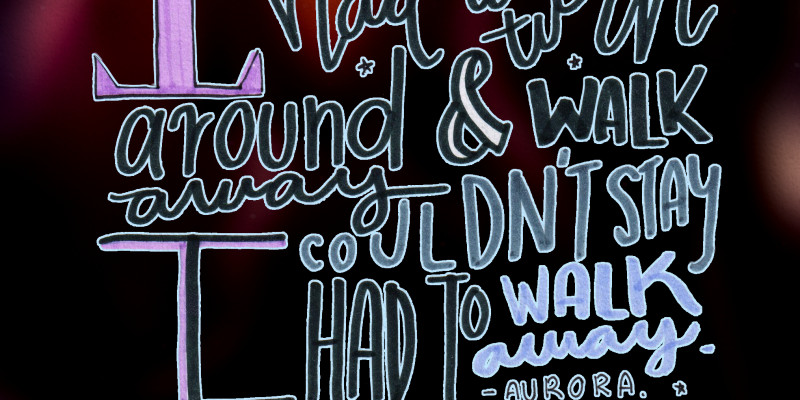 I had to turn
around & WALK
away
I coULDN'T STAY
HAD To WALK
away.
-AURORA.